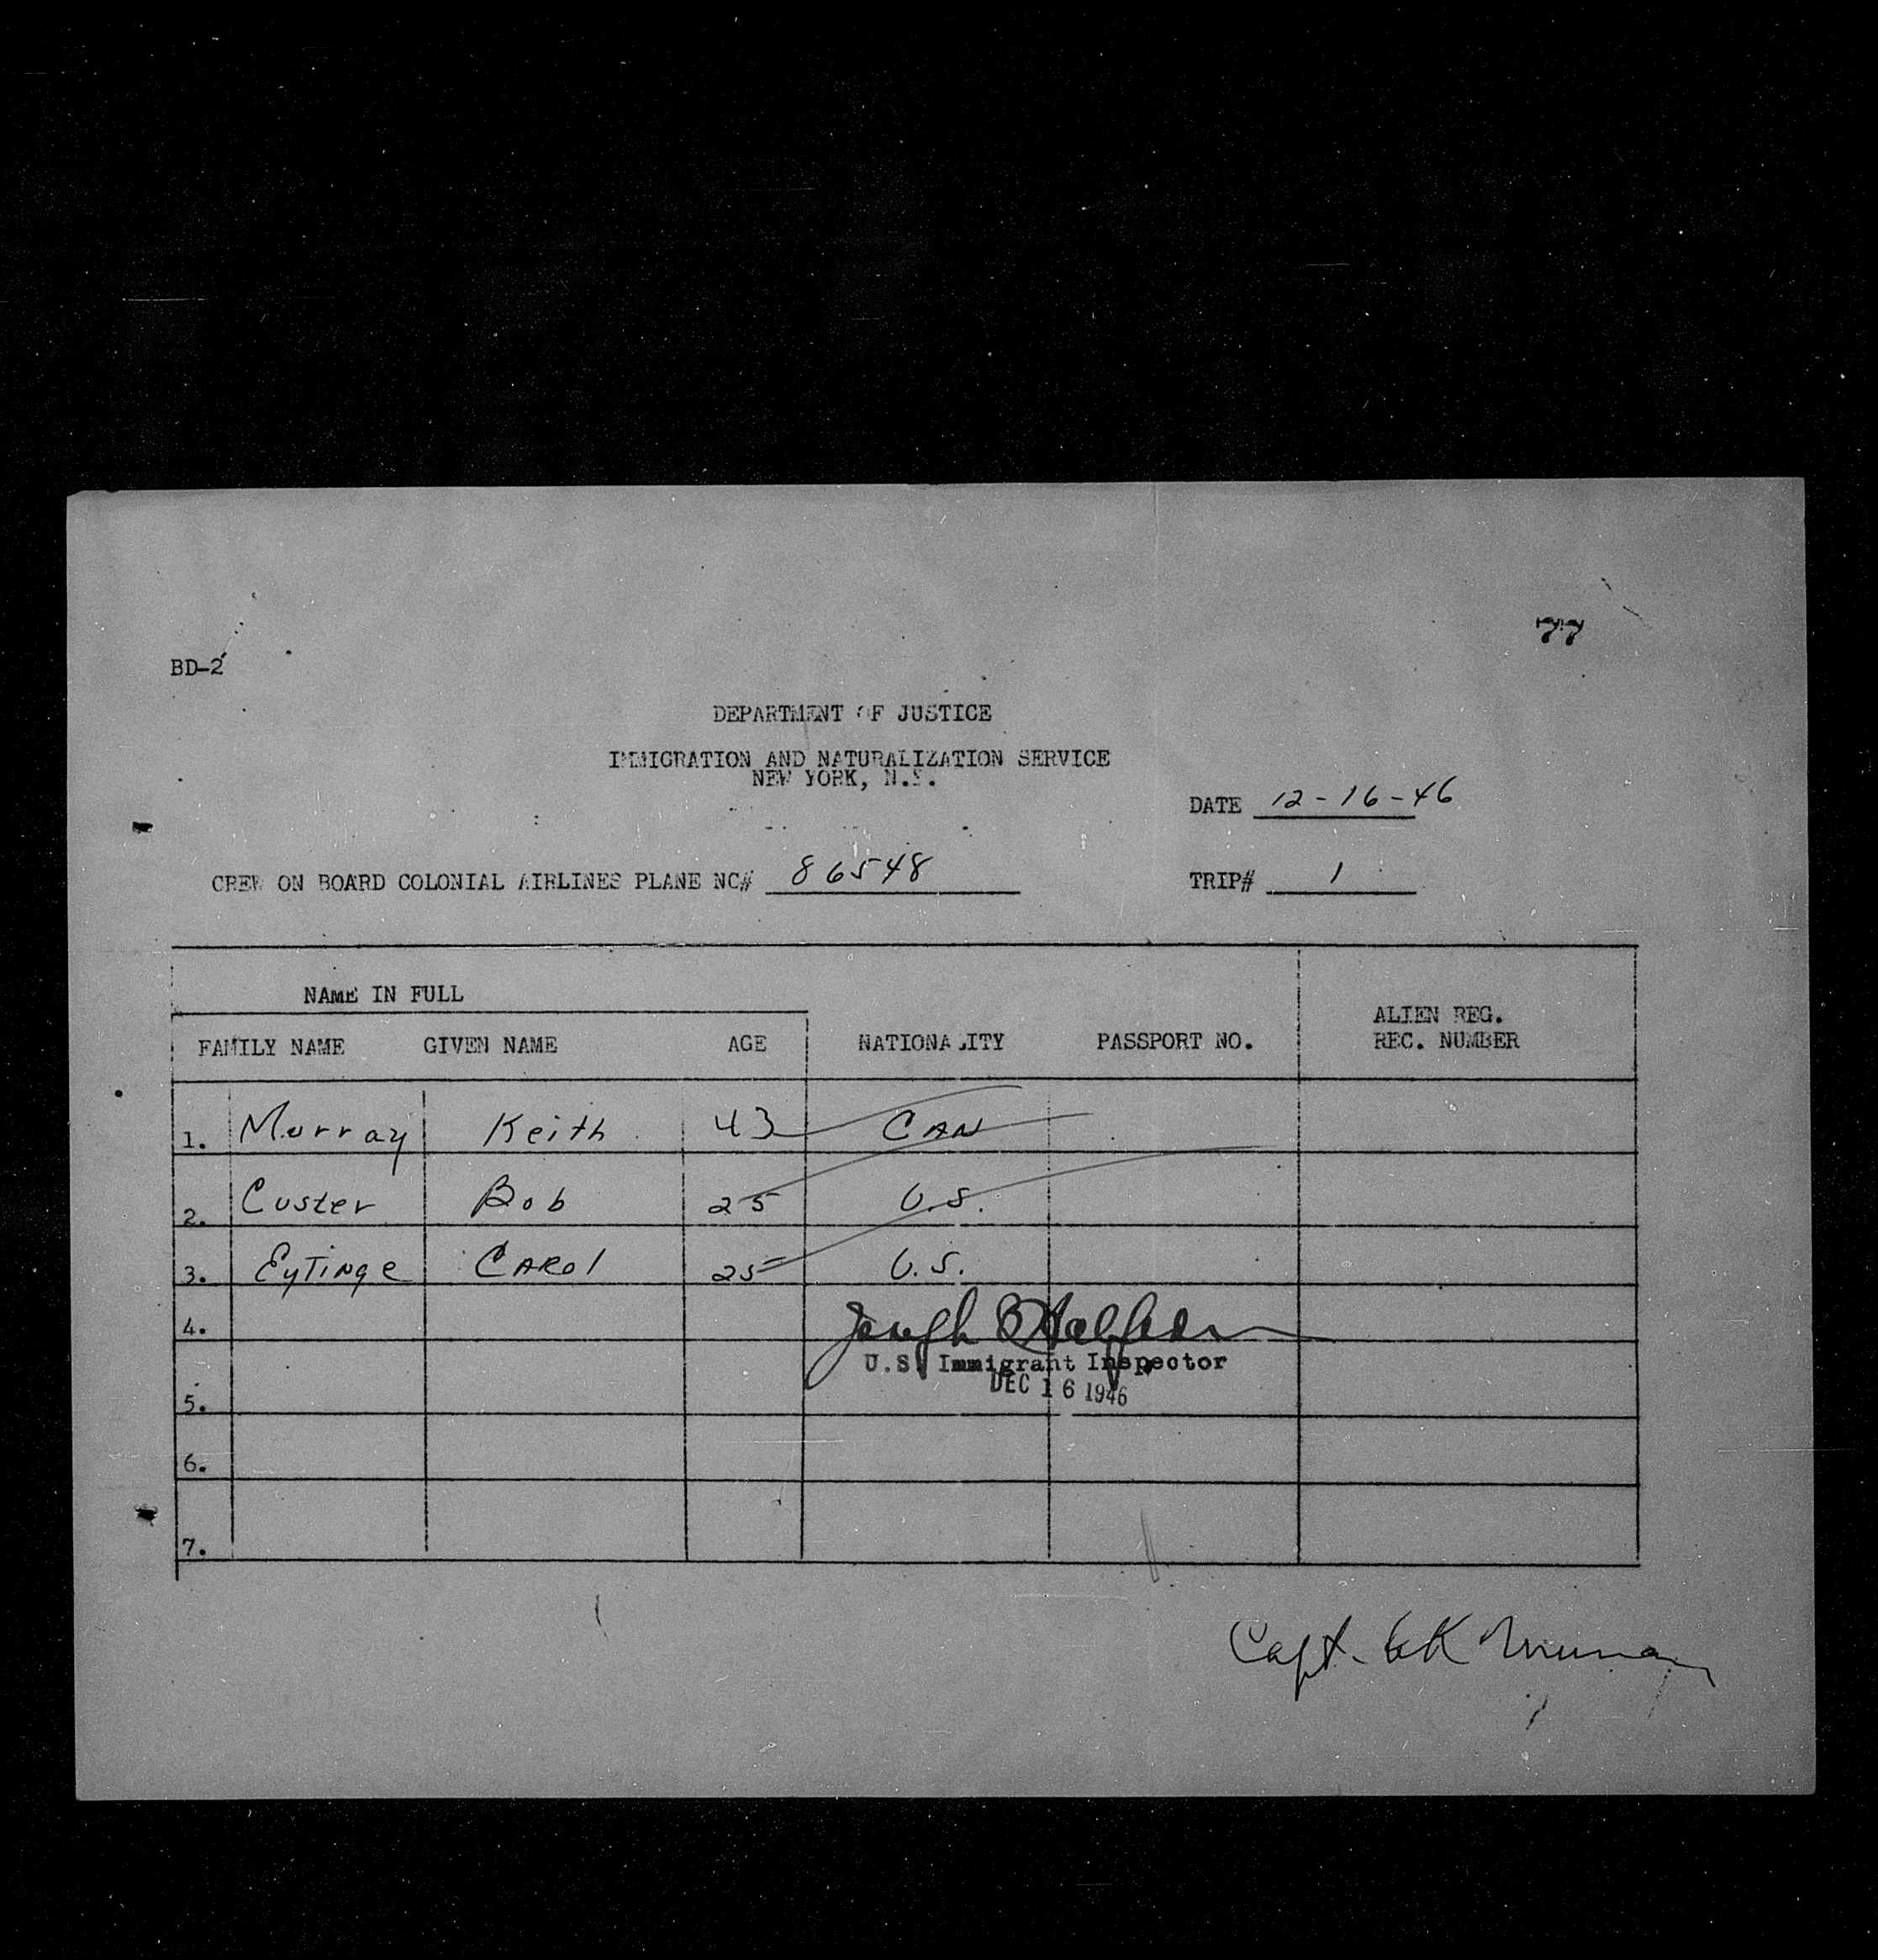 77
BD-2
DEPARTMENT OF JUSTICE
IMMIGRATION AND NATURALIZATION SERVICE
NEW YORK, N.Y.
DATE 12-16-46
CREW ON BOARD COLONIAL AIRLINES PLANE NC# 86548 TRIP# 1
NAME IN FULL
FAMILY NAME GIVEN NAME AGE NATIONALITY PASSPORT NO. ALIEN REG. REC. NUMBER
1. Murray Keith 43 CAN
2. Custer Bob 25 U.S.
3. Eytinge Carol 25 U.S.
4. Joseph
U.S. Immigrant Inspector
DEC 16 1946
5.
6.
7.
Capt. GK Murray